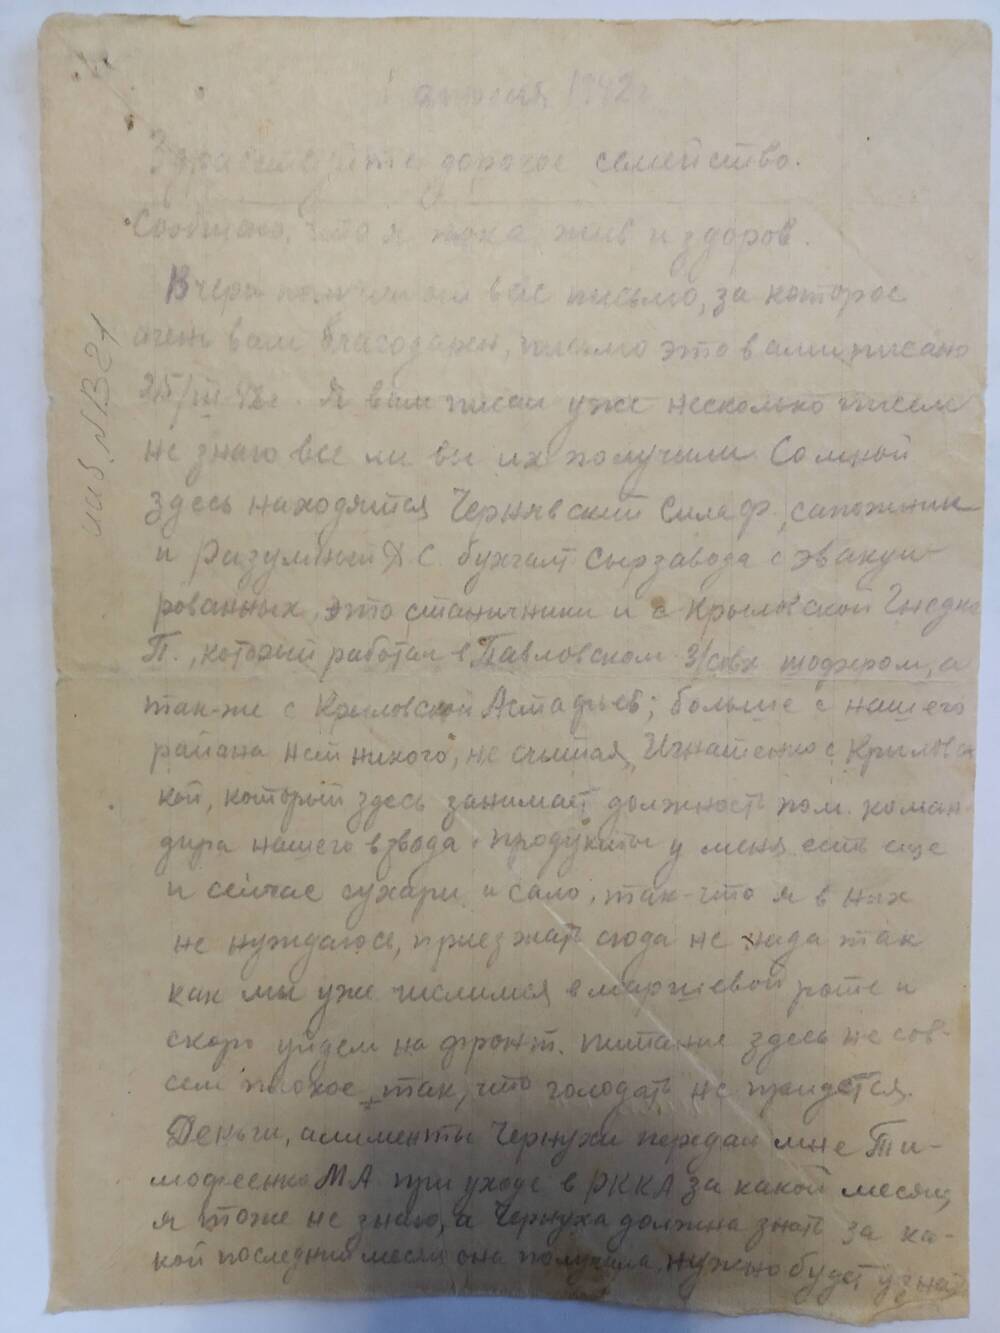 апреля 1942 г
Здравствуйте дорогое семейство.
Сообщаю, что я пока жив и здоров.
Вчера получил от вас письмо, за которое
очень вам благодарен, письмо это вами писано
25/III 42г. Я вам писал уже несколько писем
не знаю все ли вы их получили. Со мной
здесь находятся Чернявский Сила Ф., сапожник
и Разумный Д С. бухгалт Сырзавода с эвакуи-
рованных, это станичники и с Крыловской Гнедко
П., который работал в Павловском з/совх шофером, а
так-же с Крыловской Астафьев; больше с нашего
района нет никого, не считая, Игнатенко с Крыловс
кой, который здесь занимает должность пом. коман-
дира нашего взвода. Продукты у меня есть еще
и сейчас сухари и сало, так-что я в них
не нуждаюсь, приезжать сюда не нада так
как мы уже числимся в маршевой роте и
скоро уйдем на фронт. питание здесь не сов-
сем плохое, так, что голодать не придется.
Деньги, алименты Чернухи передал мне Ти-
мофеенко МА при уходе в РККА за какой месяц,
я тоже не знаю, а Чернуха должна знать за ка-
кой последний месяц она получила, нужно будет узнать
инв. №1321